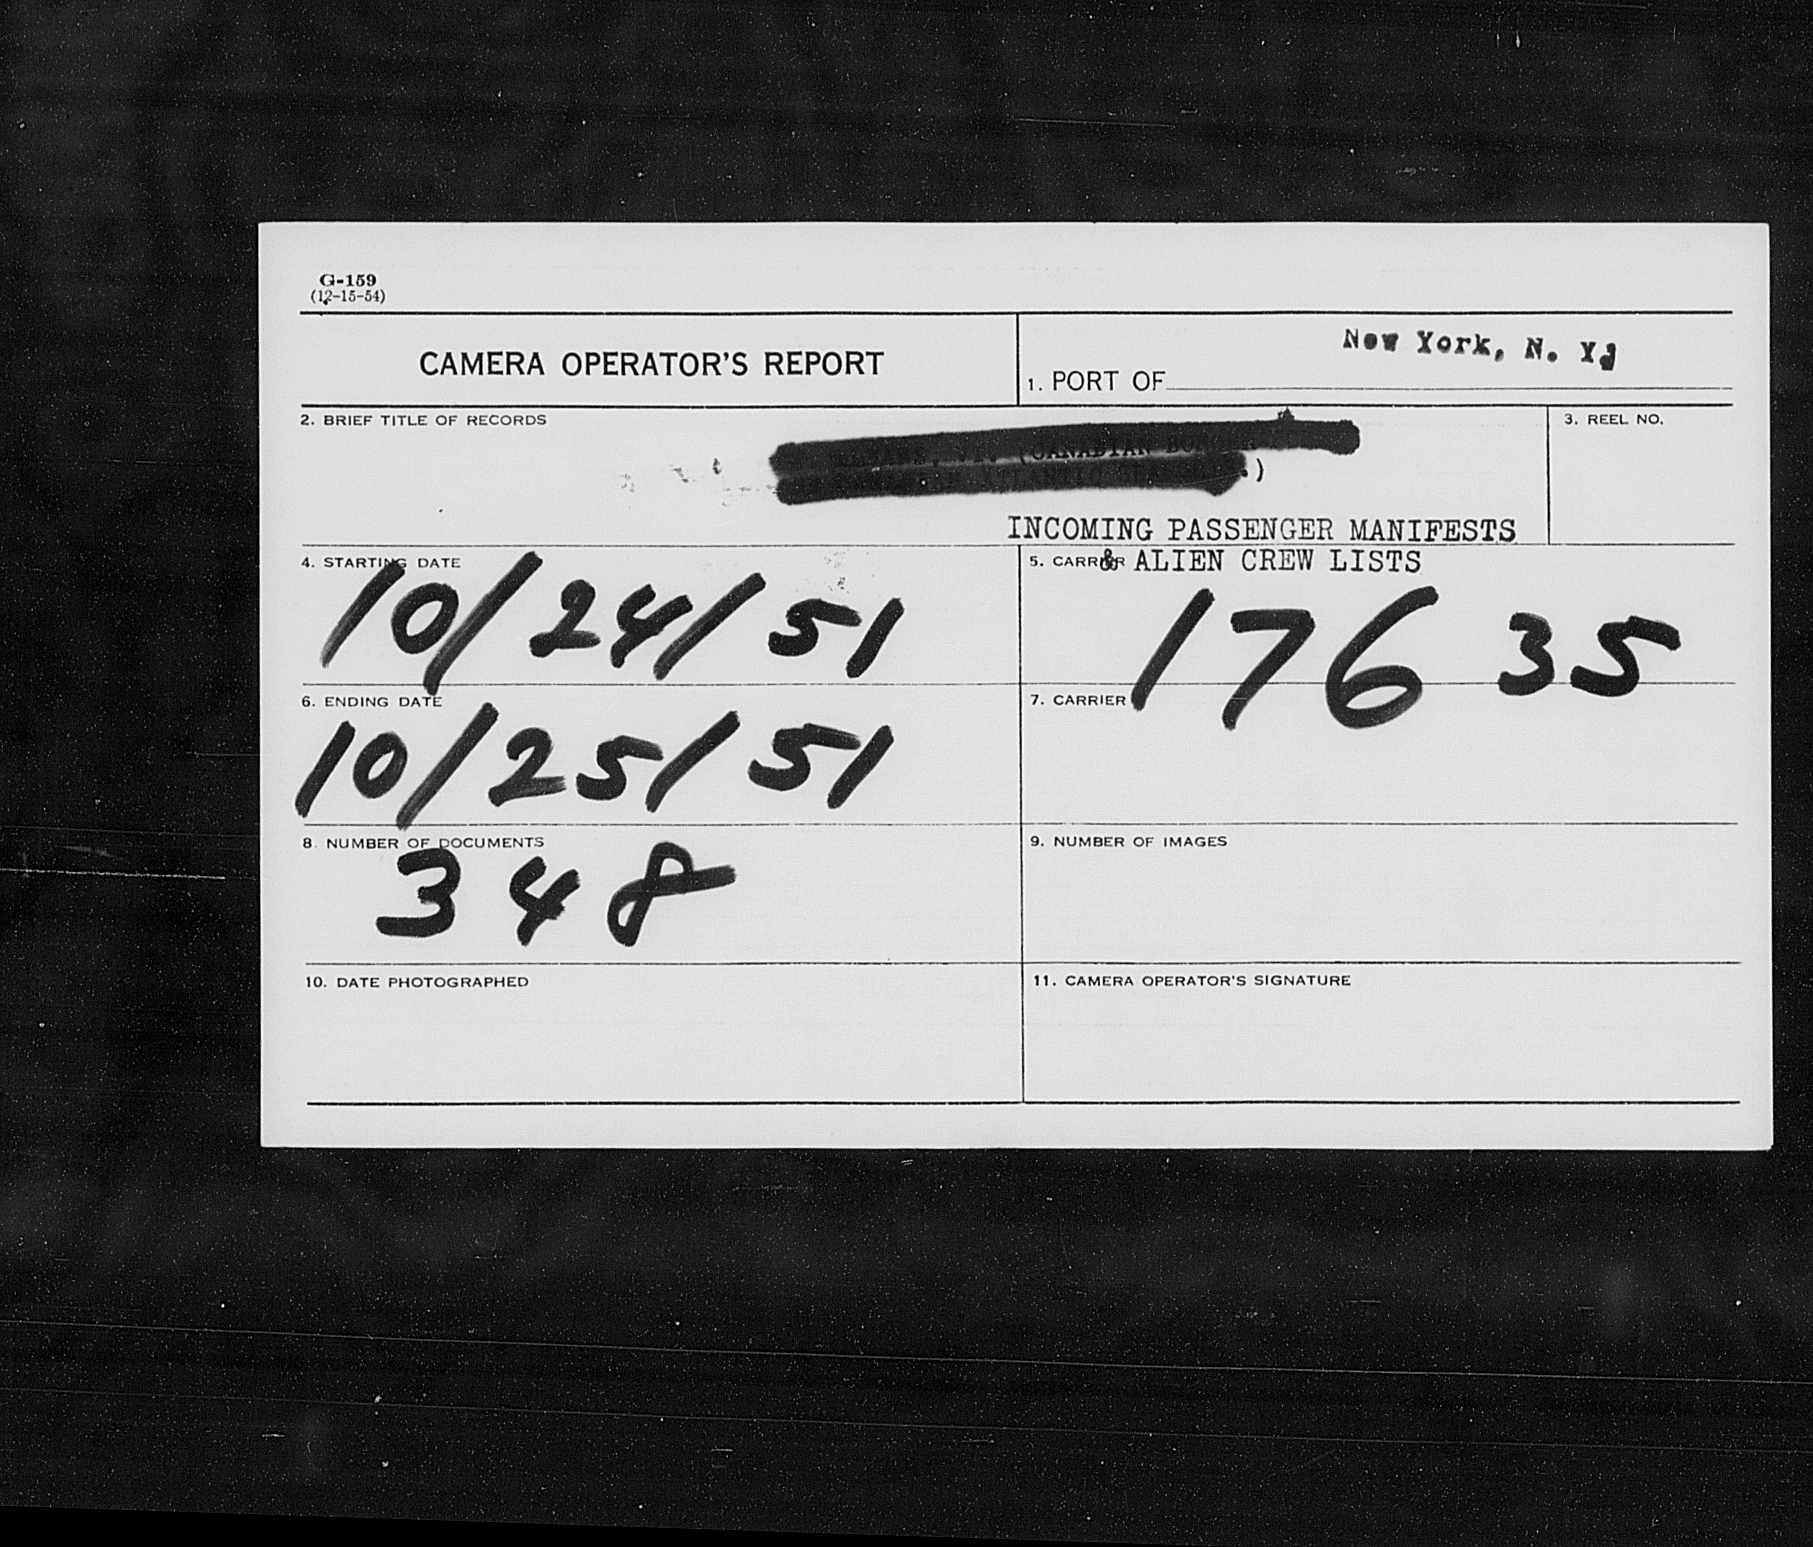 G-159
(12-15-54)
CAMERA OPERATOR'S REPORT
New York, N. Y.
1. PORT OF
2. BRIEF TITLE OF RECORDS
3. REEL NO.
(CANADIAN
.)
INCOMING PASSENGER MANIFESTS
& ALIEN CREW LISTS
4. STARTING DATE
10/24/51
5. CARRIER
17635
6. ENDING DATE
10/25/51
7. CARRIER
8. NUMBER OF DOCUMENTS
348
9. NUMBER OF IMAGES
10. DATE PHOTOGRAPHED
11. CAMERA OPERATOR'S SIGNATURE